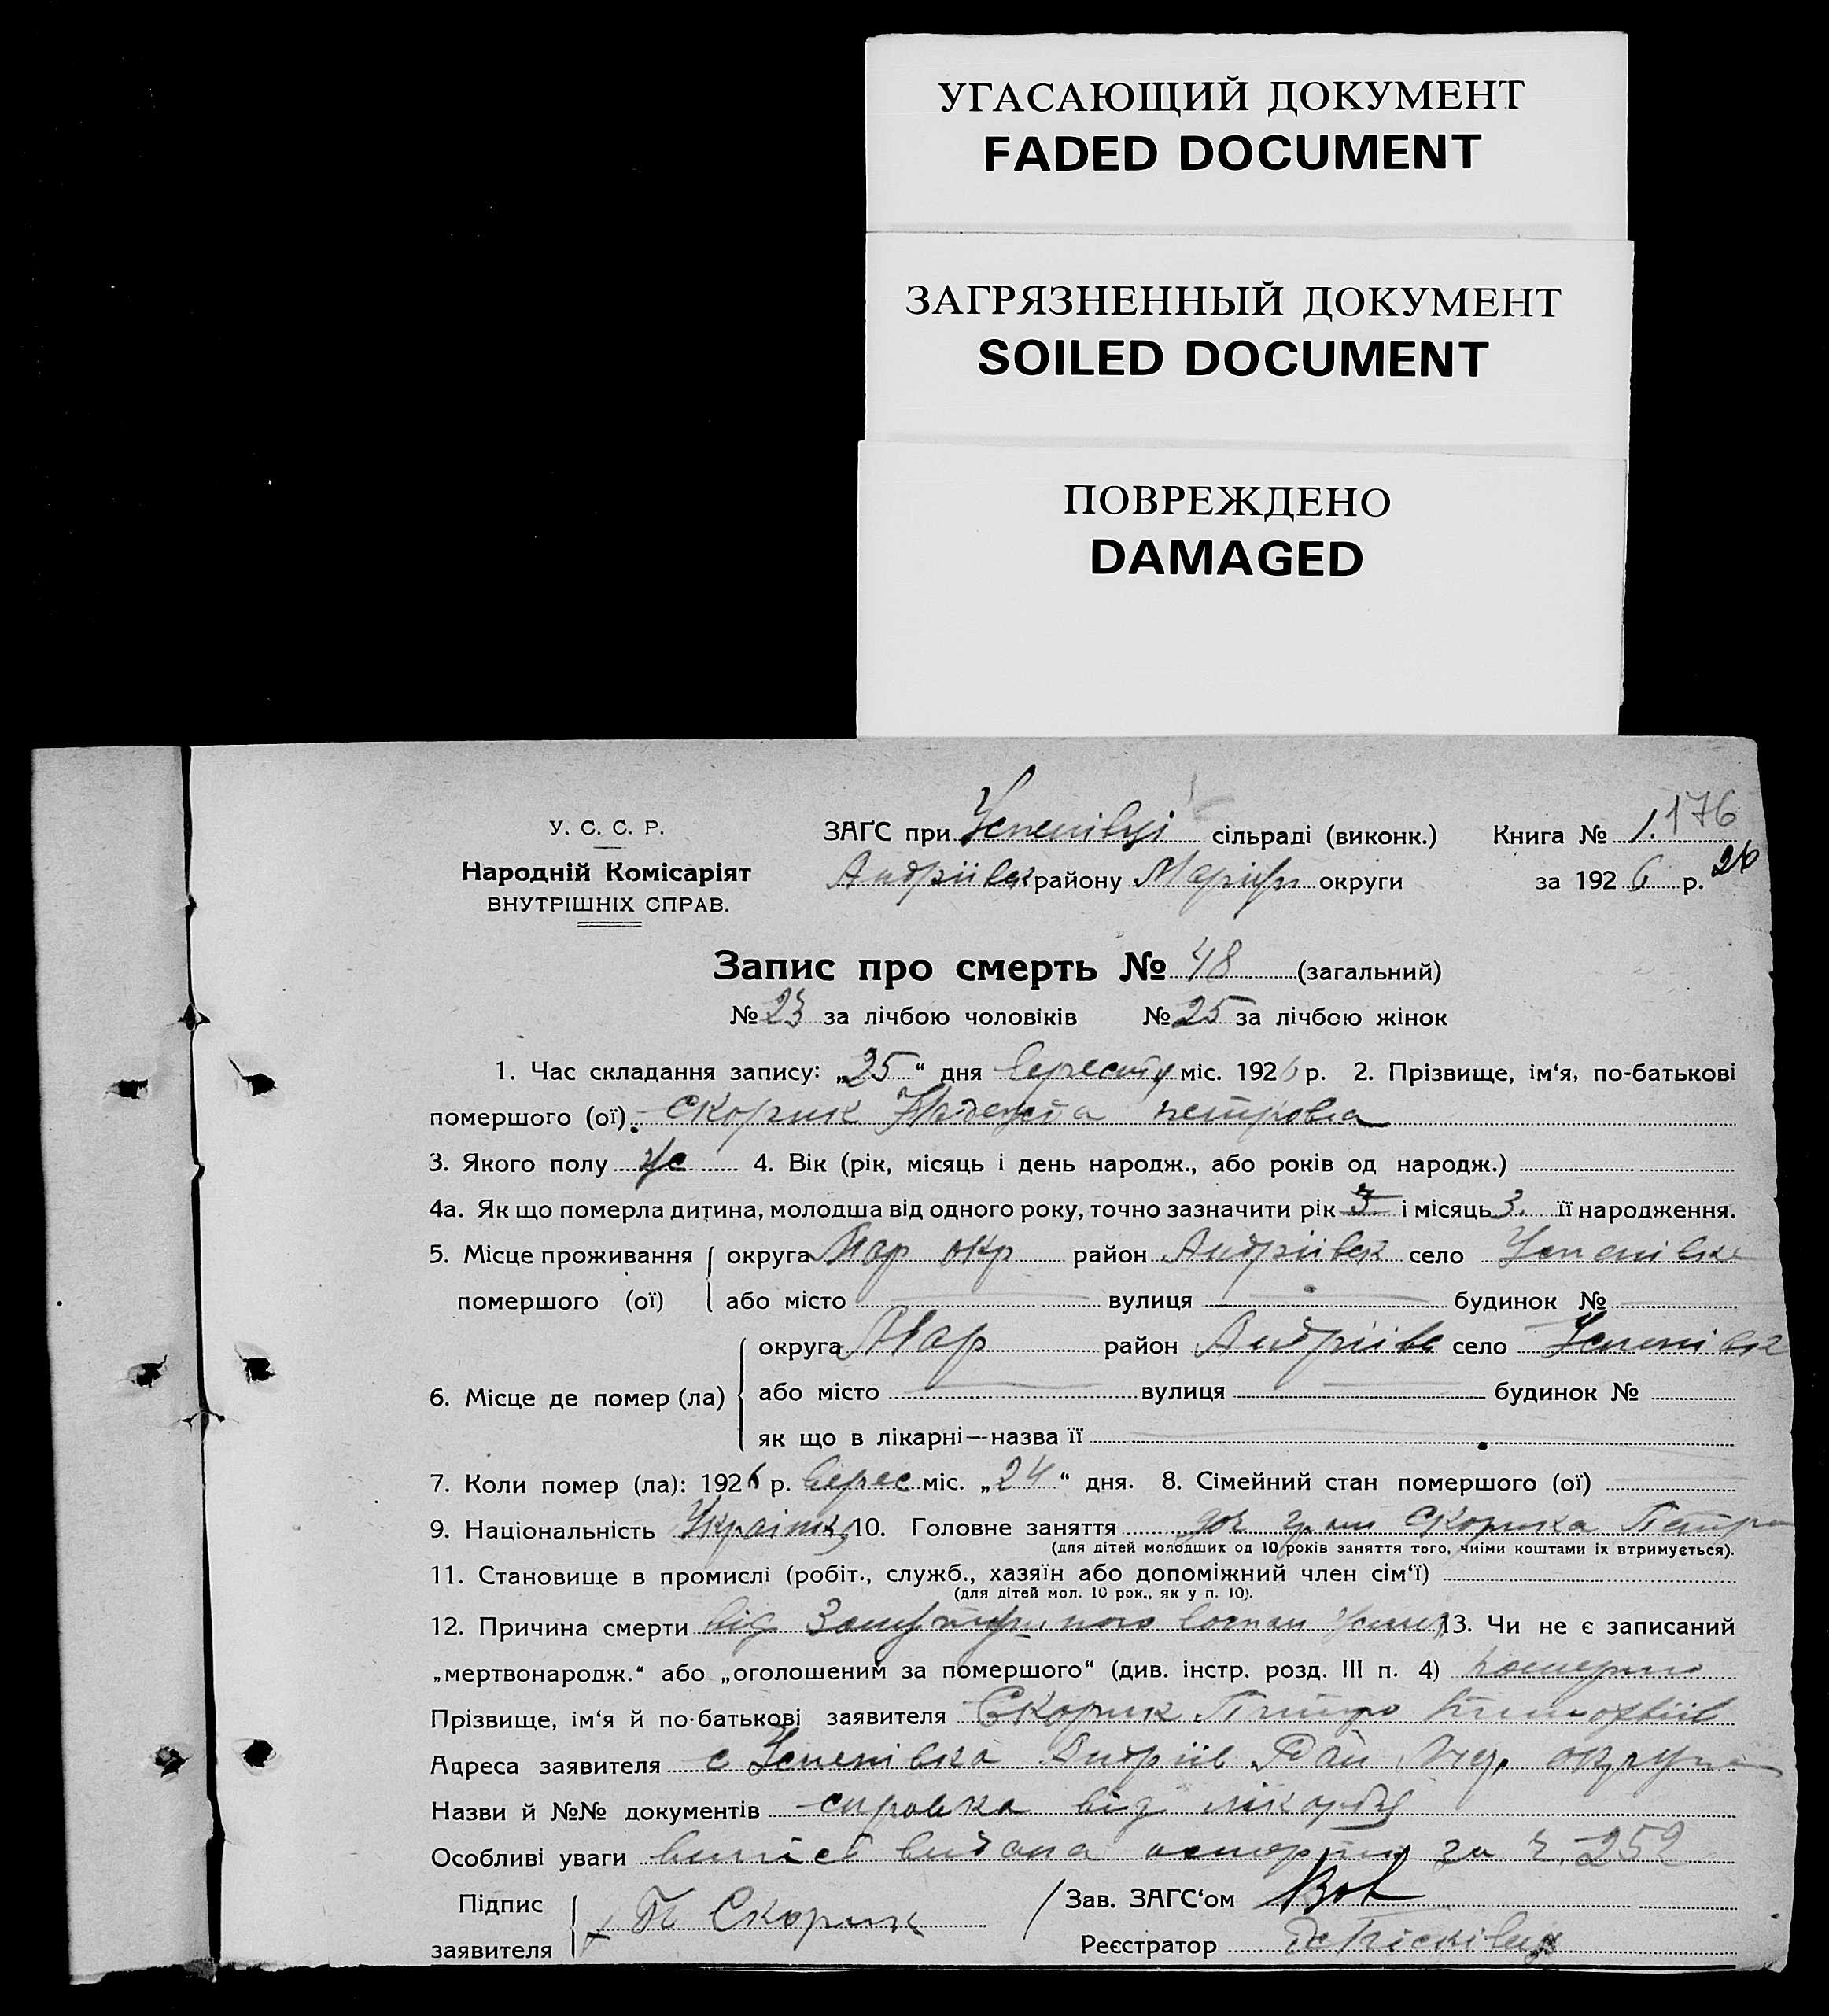 УГАСАЮЩИЙ ДОКУМЕНТ
FADED DOCUMENT
ЗАГРЯЗНЕННЫЙ ДОКУМЕНТ
SOILED DOCUMENT
ПОВРЕЖДЕНО
DAMAGED
У. С. С. Р.
Народній Комісаріят
ВНУТРІШНІХ СПРАВ.
ЗАҐС при Успенівці сільраді (виконк.) Книга № 1. 176
Андріівск району Маріуп округи за 1926 р. 26
Запис про смерть № 48 (загальний)
№ 23 за лічбою чоловіків № 25 за лічбою жінок
1. Час складання запису: „25“ дня вересня міс. 1926 р. 2. Прізвище, ім‘я, по-батькові
помершого (ої) Скорик Надежда петровна
3. Якого полу ж 4. Вік (рік, місяць і день народж., або років од народж.)
4а. Як що померла дитина, молодша від одного року, точно зазначити рік і місяць 3. її народження.
5. Місце проживання округа Мар окр район Андріівск село Успенівка
помершого (ої) або місто вулиця будинок №
округа Мар район Андріів село Успенівка
6. Місце де помер (ла) або місто вулиця будинок №
як що в лікарні—назва її
7. Коли помер (ла): 1926 р. верес міс. „24“ дня. 8. Сімейний стан помершого (ої)
9. Національність Украінка 10. Головне заняття доч гр-на Скорика Петра
(для дітей молодших од 10 років заняття того, чиїми коштами їх втримується).
11. Становище в промислі (робіт., служб., хазяїн або допоміжний член сім‘ї)
(для дітей мол. 10 рок., як у п. 10).
12. Причина смерти від 13. Чи не є записаний
„мертвонародж.“ або „оголошеним за помершого“ (див. інстр. розд. III п. 4)
Прізвище, ім‘я й по-батькові заявителя Скорик Петро
Адреса заявителя с Успенівка Андріів Рай Мар. округи
Назви й №№ документів справка від лікаря
Особливі уваги видана за ч. 252
Підпис заявителя П Скорик
Зав. ЗАҐС‘ом
Реєстратор